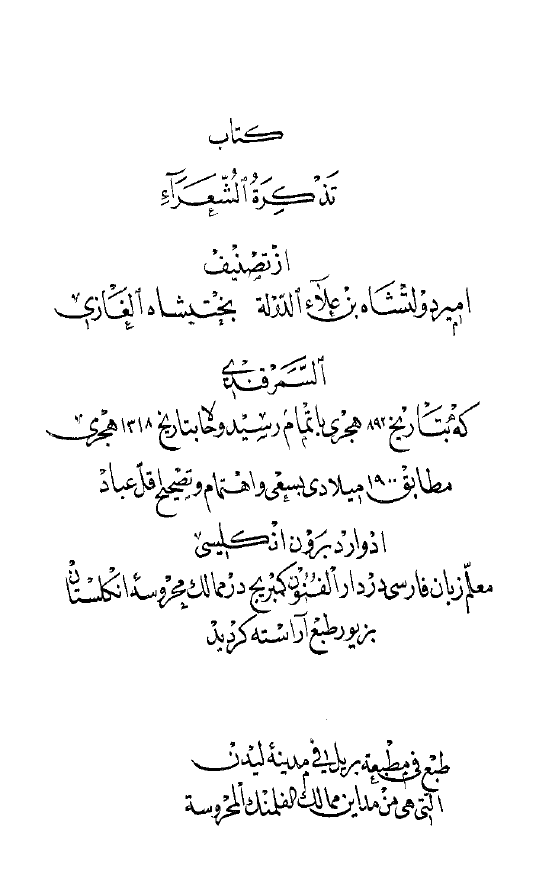 کتاب
تَذْکِرَةُ ٱلشُّعَرَآءِ
از تصنیف
امیر دولتشاه بن علاَء الدّولة بختیشاه الغازی
السَّمَرقندی
که بتاریخ ۸۹۲ هجری باتمام رسید و حالا بتاریخ ۱۳۱۸ هجری
مطابق ۱۹۰۰ میلادی بسعی و اهتمام و تصحیح اقلّ عباد
ادوارد برون انگلیسی
معلّم زبان فارسی در دار الفنون کمبریج در ممالک محروسهٔ انگلستان
بزیور طبع آراسته کردید
طبع فی مطبعة بریل فی مدینة لیدن
التی هی من مداین ممالك الفلمنك المحروسة